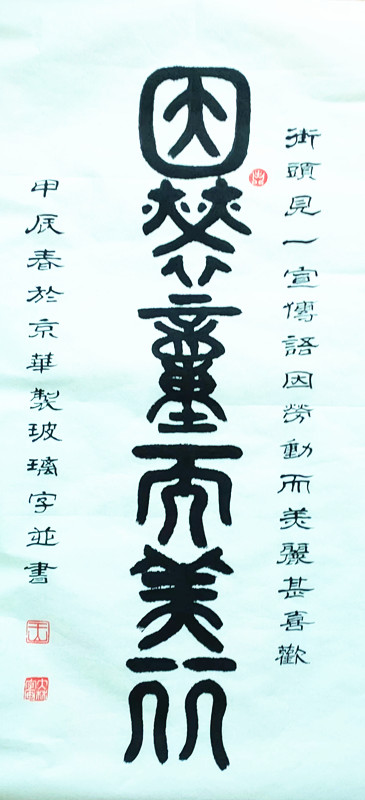 因勞動而美丽
街頭見一宣傳語因勞動而美麗甚喜歡
甲辰春於京華製玻璃字並書